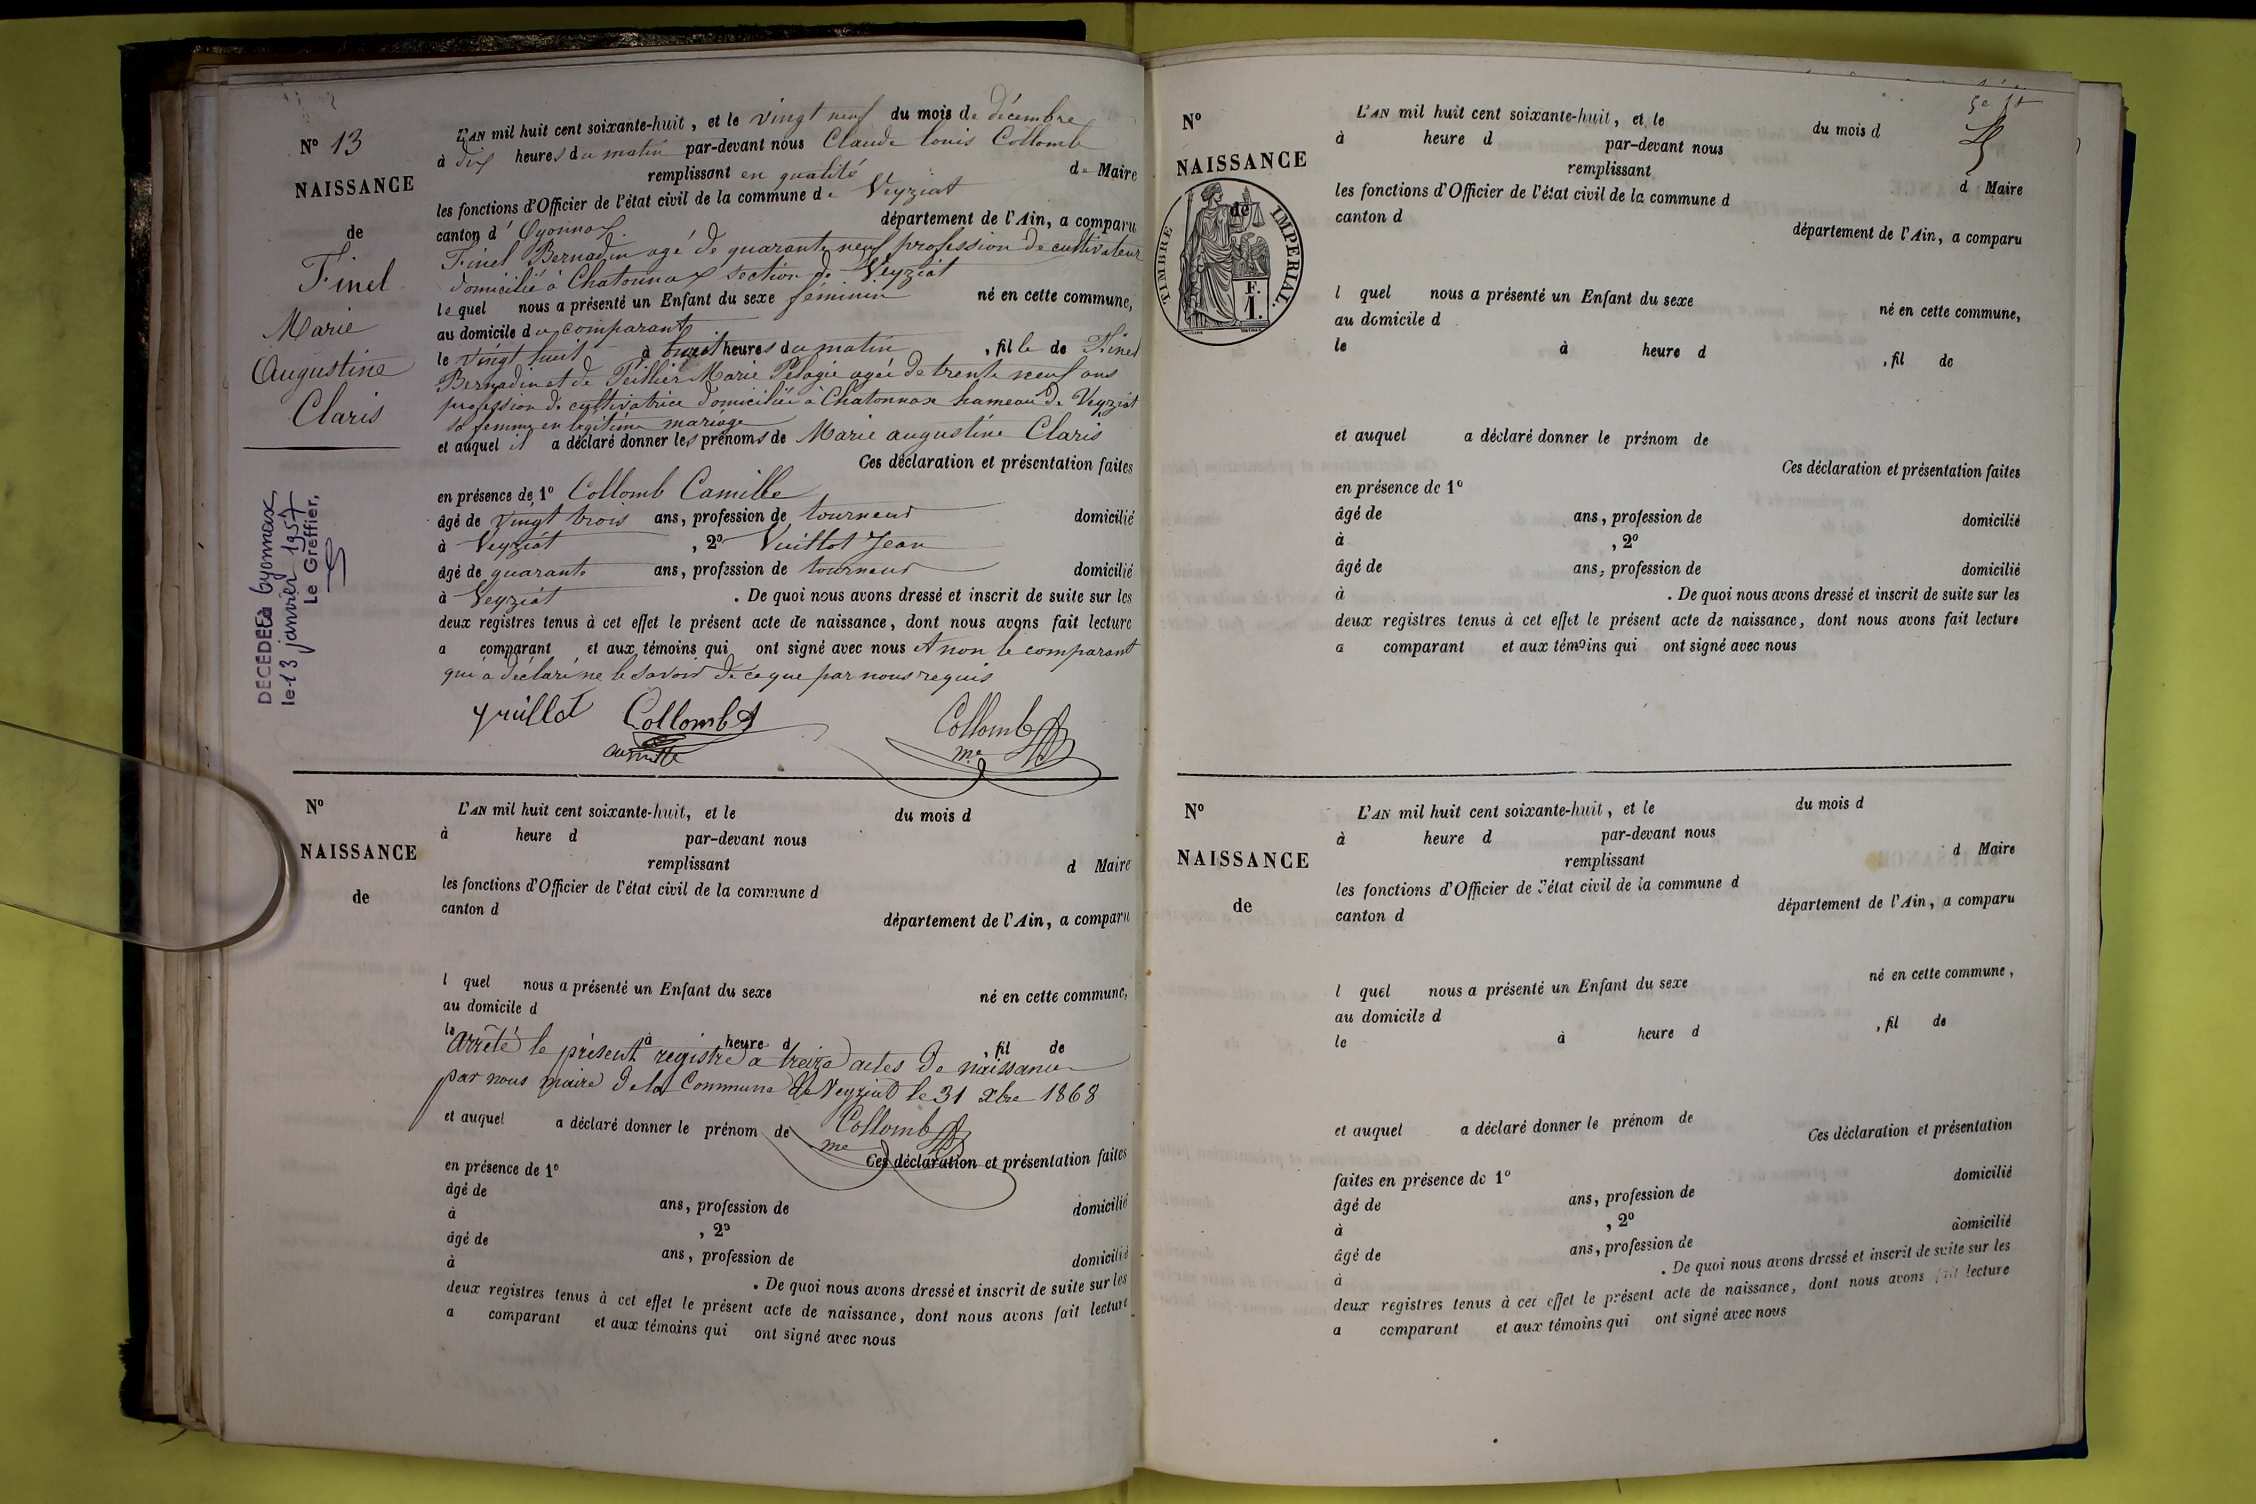 Nº 13
NAISSANCE
de
Finel
Marie
Augustine
Claris
DÉCÉDÉE à Oyonnax
le 13 janvier 1957
Le Greffier,
L'AN mil huit cent soixante-huit, et le vingt neuf du mois de décembre
à dix heures du matin par-devant nous Claude Louis Collomb
remplissant en qualité de Maire
les fonctions d'Officier de l'état civil de la commune de Veyziat
canton d'Oyonnax département de l'Ain, a comparu
Finel Bernadin agé de quarante neuf profession de cultivateur
domicilié à Chatonnax section de Veyziat
lequel nous a présenté un Enfant du sexe féminin né en cette commune,
au domicile du comparant
le vingt huit à huit heures du matin, fille de Finel
Bernadin et de Teillier Marie Pelagie agée de trente neuf ans
profession de cultivatrice domiciliée à Chatonnax hameau de Veyziat
sa femme en légitime mariage
et auquel il a déclaré donner les prénoms de Marie augustine Claris
Ces déclaration et présentation faites
en présence de 1º Collomb Camille
âgé de vingt trois ans, profession de tourneur domicilié
à Veyziat, 2º Vuillot Jean
âgé de quarante ans, profession de tourneur domicilié
à Veyziat. De quoi nous avons dressé et inscrit de suite sur les
deux registres tenus à cet effet le présent acte de naissance, dont nous avons fait lecture
a comparant et aux témoins qui ont signé avec nous Et non le comparant
qui a déclaré ne le savoir de ce que par nous requis
Vuillot Collomb Collomb
Camille me
Nº
NAISSANCE
de
L'AN mil huit cent soixante-huit, et le du mois d
à heure d par-devant nous
remplissant d Maire
les fonctions d'Officier de l'état civil de la commune d
canton d département de l'Ain, a comparu
l quel nous a présenté un Enfant du sexe né en cette commune,
au domicile d
le à heure d , fil de
Arrêté le présent registre a treize actes de naissance
par nous maire de la Commune de Veyziat le 31 xbre 1868
et auquel a déclaré donner le prénom de
Collomb
me
Ces déclaration et présentation faites
en présence de 1º
âgé de ans, profession de domicilié
à , 2º
âgé de ans, profession de domicilié
à . De quoi nous avons dressé et inscrit de suite sur les
deux registres tenus à cet effet le présent acte de naissance, dont nous avons fait lecture
a comparant et aux témoins qui ont signé avec nous
Nº
NAISSANCE
de
TIMBRE IMPERIAL.
F.
1.
L'AN mil huit cent soixante-huit, et le du mois d
à heure d par-devant nous
remplissant d Maire
les fonctions d'Officier de l'état civil de la commune d
canton d département de l'Ain, a comparu
l quel nous a présenté un Enfant du sexe né en cette commune,
au domicile d
le à heure d , fil de
et auquel a déclaré donner le prénom de
Ces déclaration et présentation faites
en présence de 1º
âgé de ans, profession de domicilié
à , 2º
âgé de ans, profession de domicilié
à . De quoi nous avons dressé et inscrit de suite sur les
deux registres tenus à cet effet le présent acte de naissance, dont nous avons fait lecture
a comparant et aux témoins qui ont signé avec nous
Nº
NAISSANCE
de
L'AN mil huit cent soixante-huit, et le du mois d
à heure d par-devant nous
remplissant d Maire
les fonctions d'Officier de l'état civil de la commune d
canton d département de l'Ain, a comparu
l quel nous a présenté un Enfant du sexe né en cette commune,
au domicile d
le à heure d , fil de
et auquel a déclaré donner le prénom de
Ces déclaration et présentation
faites en présence de 1º domicilié
âgé de ans, profession de
à , 2º domicilié
âgé de ans, profession de
à . De quoi nous avons dressé et inscrit de suite sur les
deux registres tenus à cet effet le présent acte de naissance, dont nous avons fait lecture
a comparant et aux témoins qui ont signé avec nous